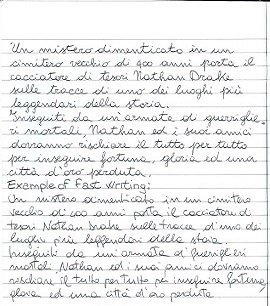 Un mistero dimenticato in un
cimitero vecchio di 900 anni porta il
cacciatore di tesori Nathan Drake
sulle tracce di uno dei luoghi più
leggendari della storia.
Inseguiti da un'armata di guerriglie-
ri mortali, Nathan ed i suoi amici
dovranno rischiare il tutto per tutto
per inseguire fortuna, gloria ed una
città d'oro perduta.
Example of Fast Writing:
Un mistero dimenticato in un cimitero
vecchio di 900 anni porta il cacciatore di
tesori Nathan Drake sulle tracce d'uno dei
luoghi più leggendari della storia
Inseguiti da un'armata di guerriglieri
mortali Nathan ed i suoi amici dovranno
rischiare il tutto per tutto per inseguire fortuna,
gloria ed una città d'oro perduta